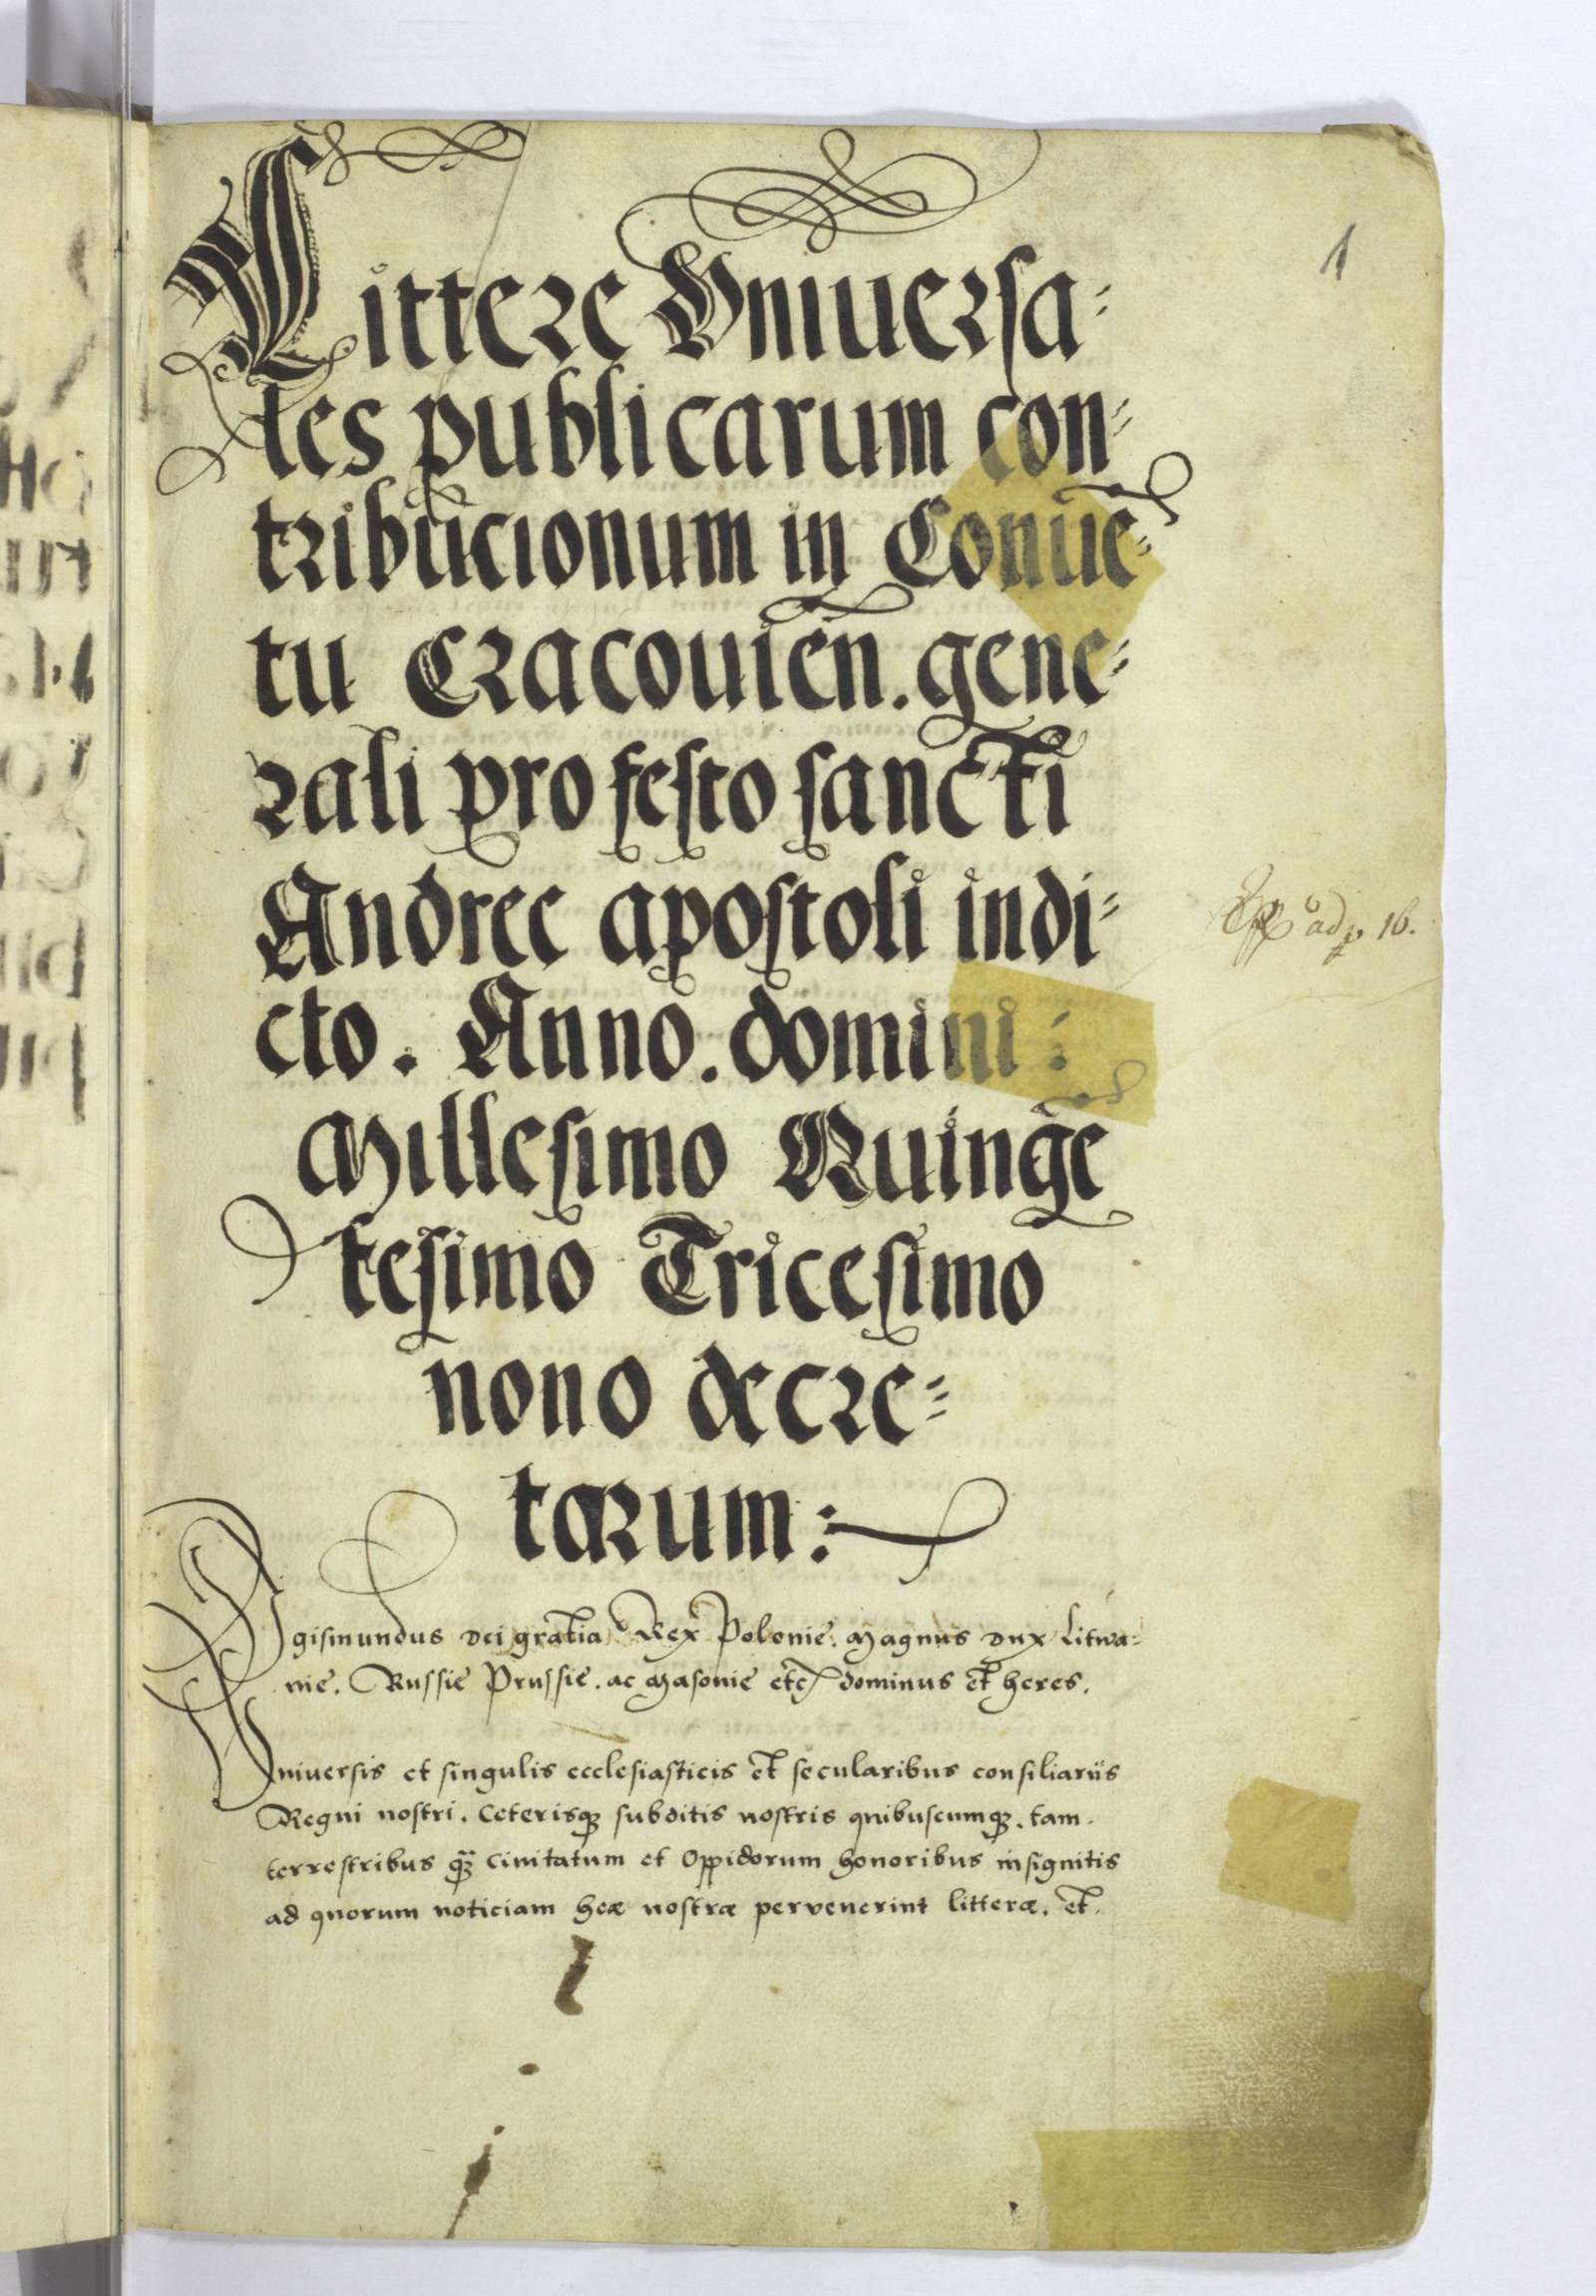 1
Littere Vniuersa=
les publicarum con=
tribucionum in Conuē=
tu Cracouien̄. gene=
rali pro festo sancti
Andree apostoli indi=
cto. Anno. domini:
Millesimo Quingē
tesimo Tricesimo
nono decre=
tarum:
ad p 16.
Sigismundus dei gratia Rex Polonie. Magnus dux Litwa=
nie. Russie Prussie. ac Masouie etc̄ dominus et heres.
Vniversis et singulis ecclesiasticis et secularibus consiliariis
Regni nostri. Ceterisqꝫ subditis nostris quibuscumqꝫ. tam.
terrestribus qꝫ̄ Civitatum et Oppidorum honoribus insignitis
ad quorum noticiam heæ nostræ pervenerint litteræ. et.